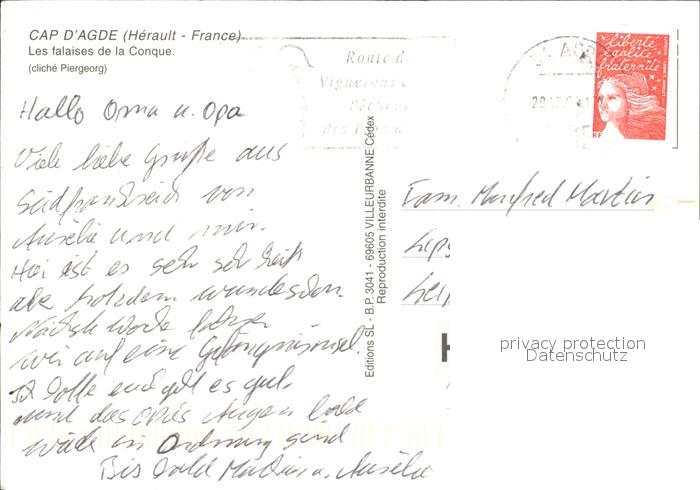 CAP D'AGDE (Hérault - France)
Les falaises de la Conque.
(cliché Piergeorg)
Route d
Vignerons
Pêcheu
des Pays
liberté
égalité
fraternité
RF
Hallo Oma u. Opa
Viele liebe Grüße aus
Südfrankreich von
Aurelie und mir.
Hier ist es sehr sehr heiß
aber trotzdem wunderschön.
Nächste Woche fahren
wir auf eine Gefängnisinsel.
Ich hoffe euch geht es gut.
und das Opas Augen bald
wieder in Ordnung sind
Bis bald Martin u. Aurelie
Editions SL - B.P. 3041 - 69605 VILLEURBANNE Cédex
Reproduction interdite
Fam. Manfred Martin
privacy protection
Datenschutz